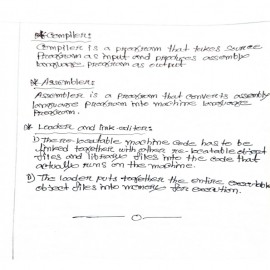 * Compiler:
Compiler is a program that takes source
program as input and produces assembly
language program as output
* Assembler:
Assembler is a program that converts assembly
language program into machine language
program.
* Loader and link-editor:
i) The re-locatable machine code has to be
linked together with other re-locatable object
files and library files into the code that
actually runs on the machine.
ii) The loader puts together the entire executable
object files into memory for execution.